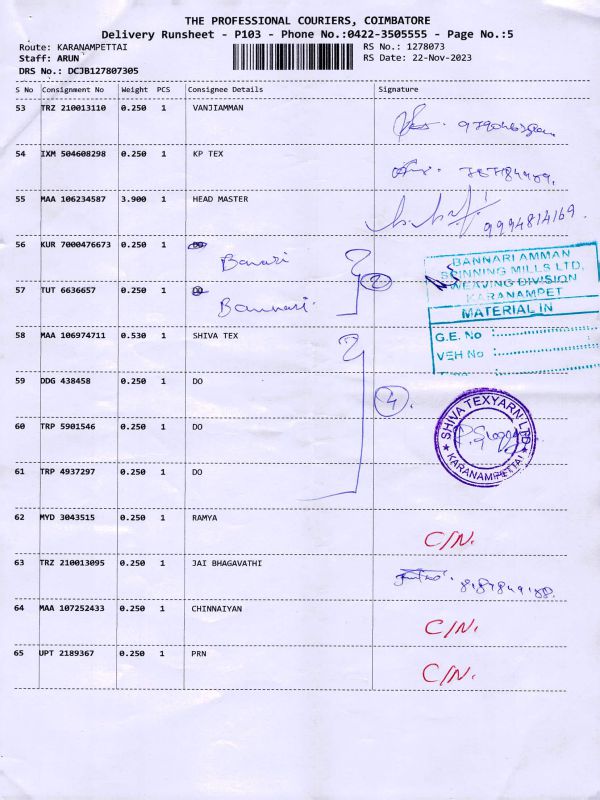 THE PROFESSIONAL COURIERS, COIMBATORE
Delivery Runsheet - P103 - Phone No.:0422-3505555 - Page No.:5
Route: KARANAMPETTAI RS No.: 1278073
Staff: ARUN RS Date: 22-Nov-2023
DRS No.: DCJB127807305
S No Consignment No Weight PCS Consignee Details Signature
53 TRZ 210013110 0.250 1 VANJIAMMAN
54 IXM 504608298 0.250 1 KP TEX
55 MAA 106234587 3.900 1 HEAD MASTER 9994814169.
56 KUR 7000476673 0.250 1 Bannari
2
BANNARI AMMAN
SPINNING MILLS LTD.
WEAVING DIVISION
KARANAMPET
MATERIAL IN
G.E. No :
VEH No :
57 TUT 6636657 0.250 1 Bannari.
58 MAA 106974711 0.530 1 SHIVA TEX
59 DDG 438458 0.250 1 DO
4.
SHIVA TEXYARN LTD
KARANAMPETTAI
60 TRP 5901546 0.250 1 DO
61 TRP 4937297 0.250 1 DO
62 MYD 3043515 0.250 1 RAMYA C/N.
63 TRZ 210013095 0.250 1 JAI BHAGAVATHI
64 MAA 107252433 0.250 1 CHINNAIYAN C/N.
65 UPT 2189367 0.250 1 PRN C/N.